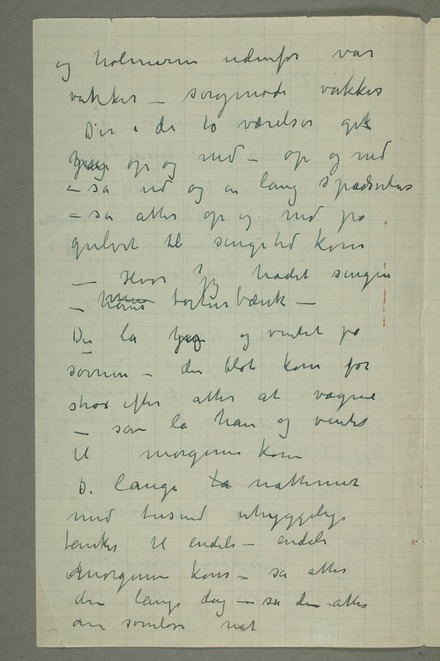 og holmerne udenfor var
vakker – sørgmodi vakker
Der i de to værelser gik
op og ned – op og ned
– så ud og en lang spadsertur
– så atter op og ned på
gulvet til sengetid kom
– Hvor jeg hadet sengen
– hans torturbænk –
Der la han og ventet på
søvnen – der blot kom for
strax efter atter at vægne
– så la han og ventet
til morgenen kom
D. lange nætterne
med tusend uhyggelige
tanker til endels – endels
morgenen kom – så atter
den lange dag – så den atter
den sønløse nat